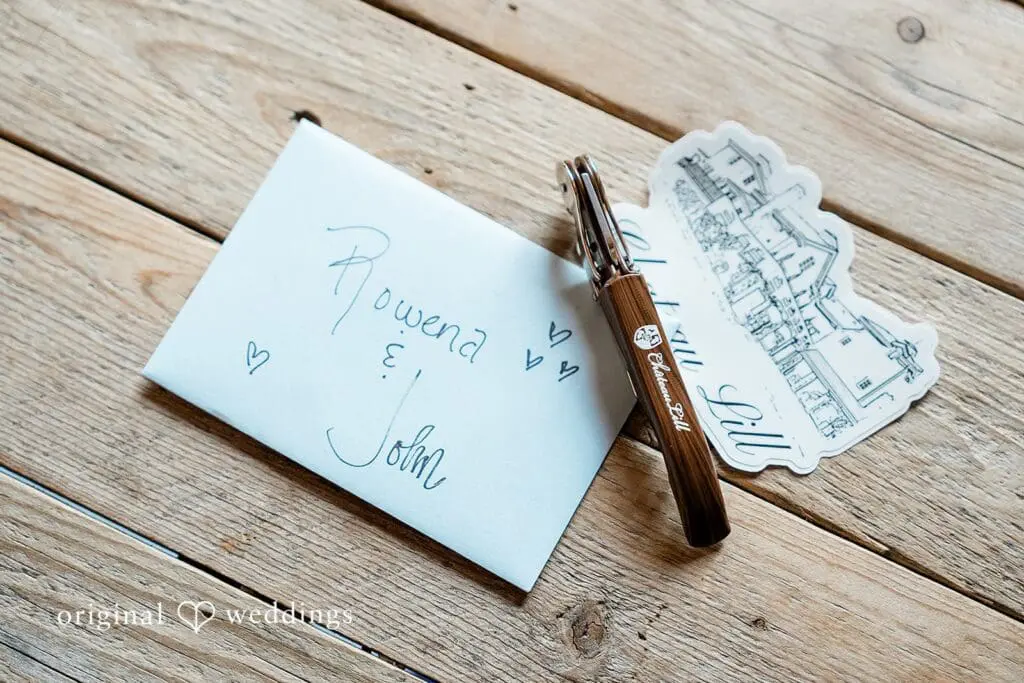 Rowena
&
John
Chateau Lill
Chateau Lill
original weddings